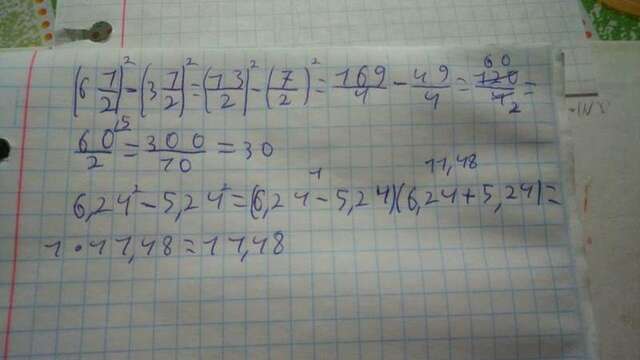 (6 1/2)² - (3 1/2)² = (13/2)² - (7/2)² = 169/4 - 49/4 = 60 120/4 2 =
60/2 15 = 300/10 = 30
6,24² - 5,24² = (6,24 - 5,24) 1 (6,24 + 5,24) 11,48 =
1 · 11,48 = 11,48